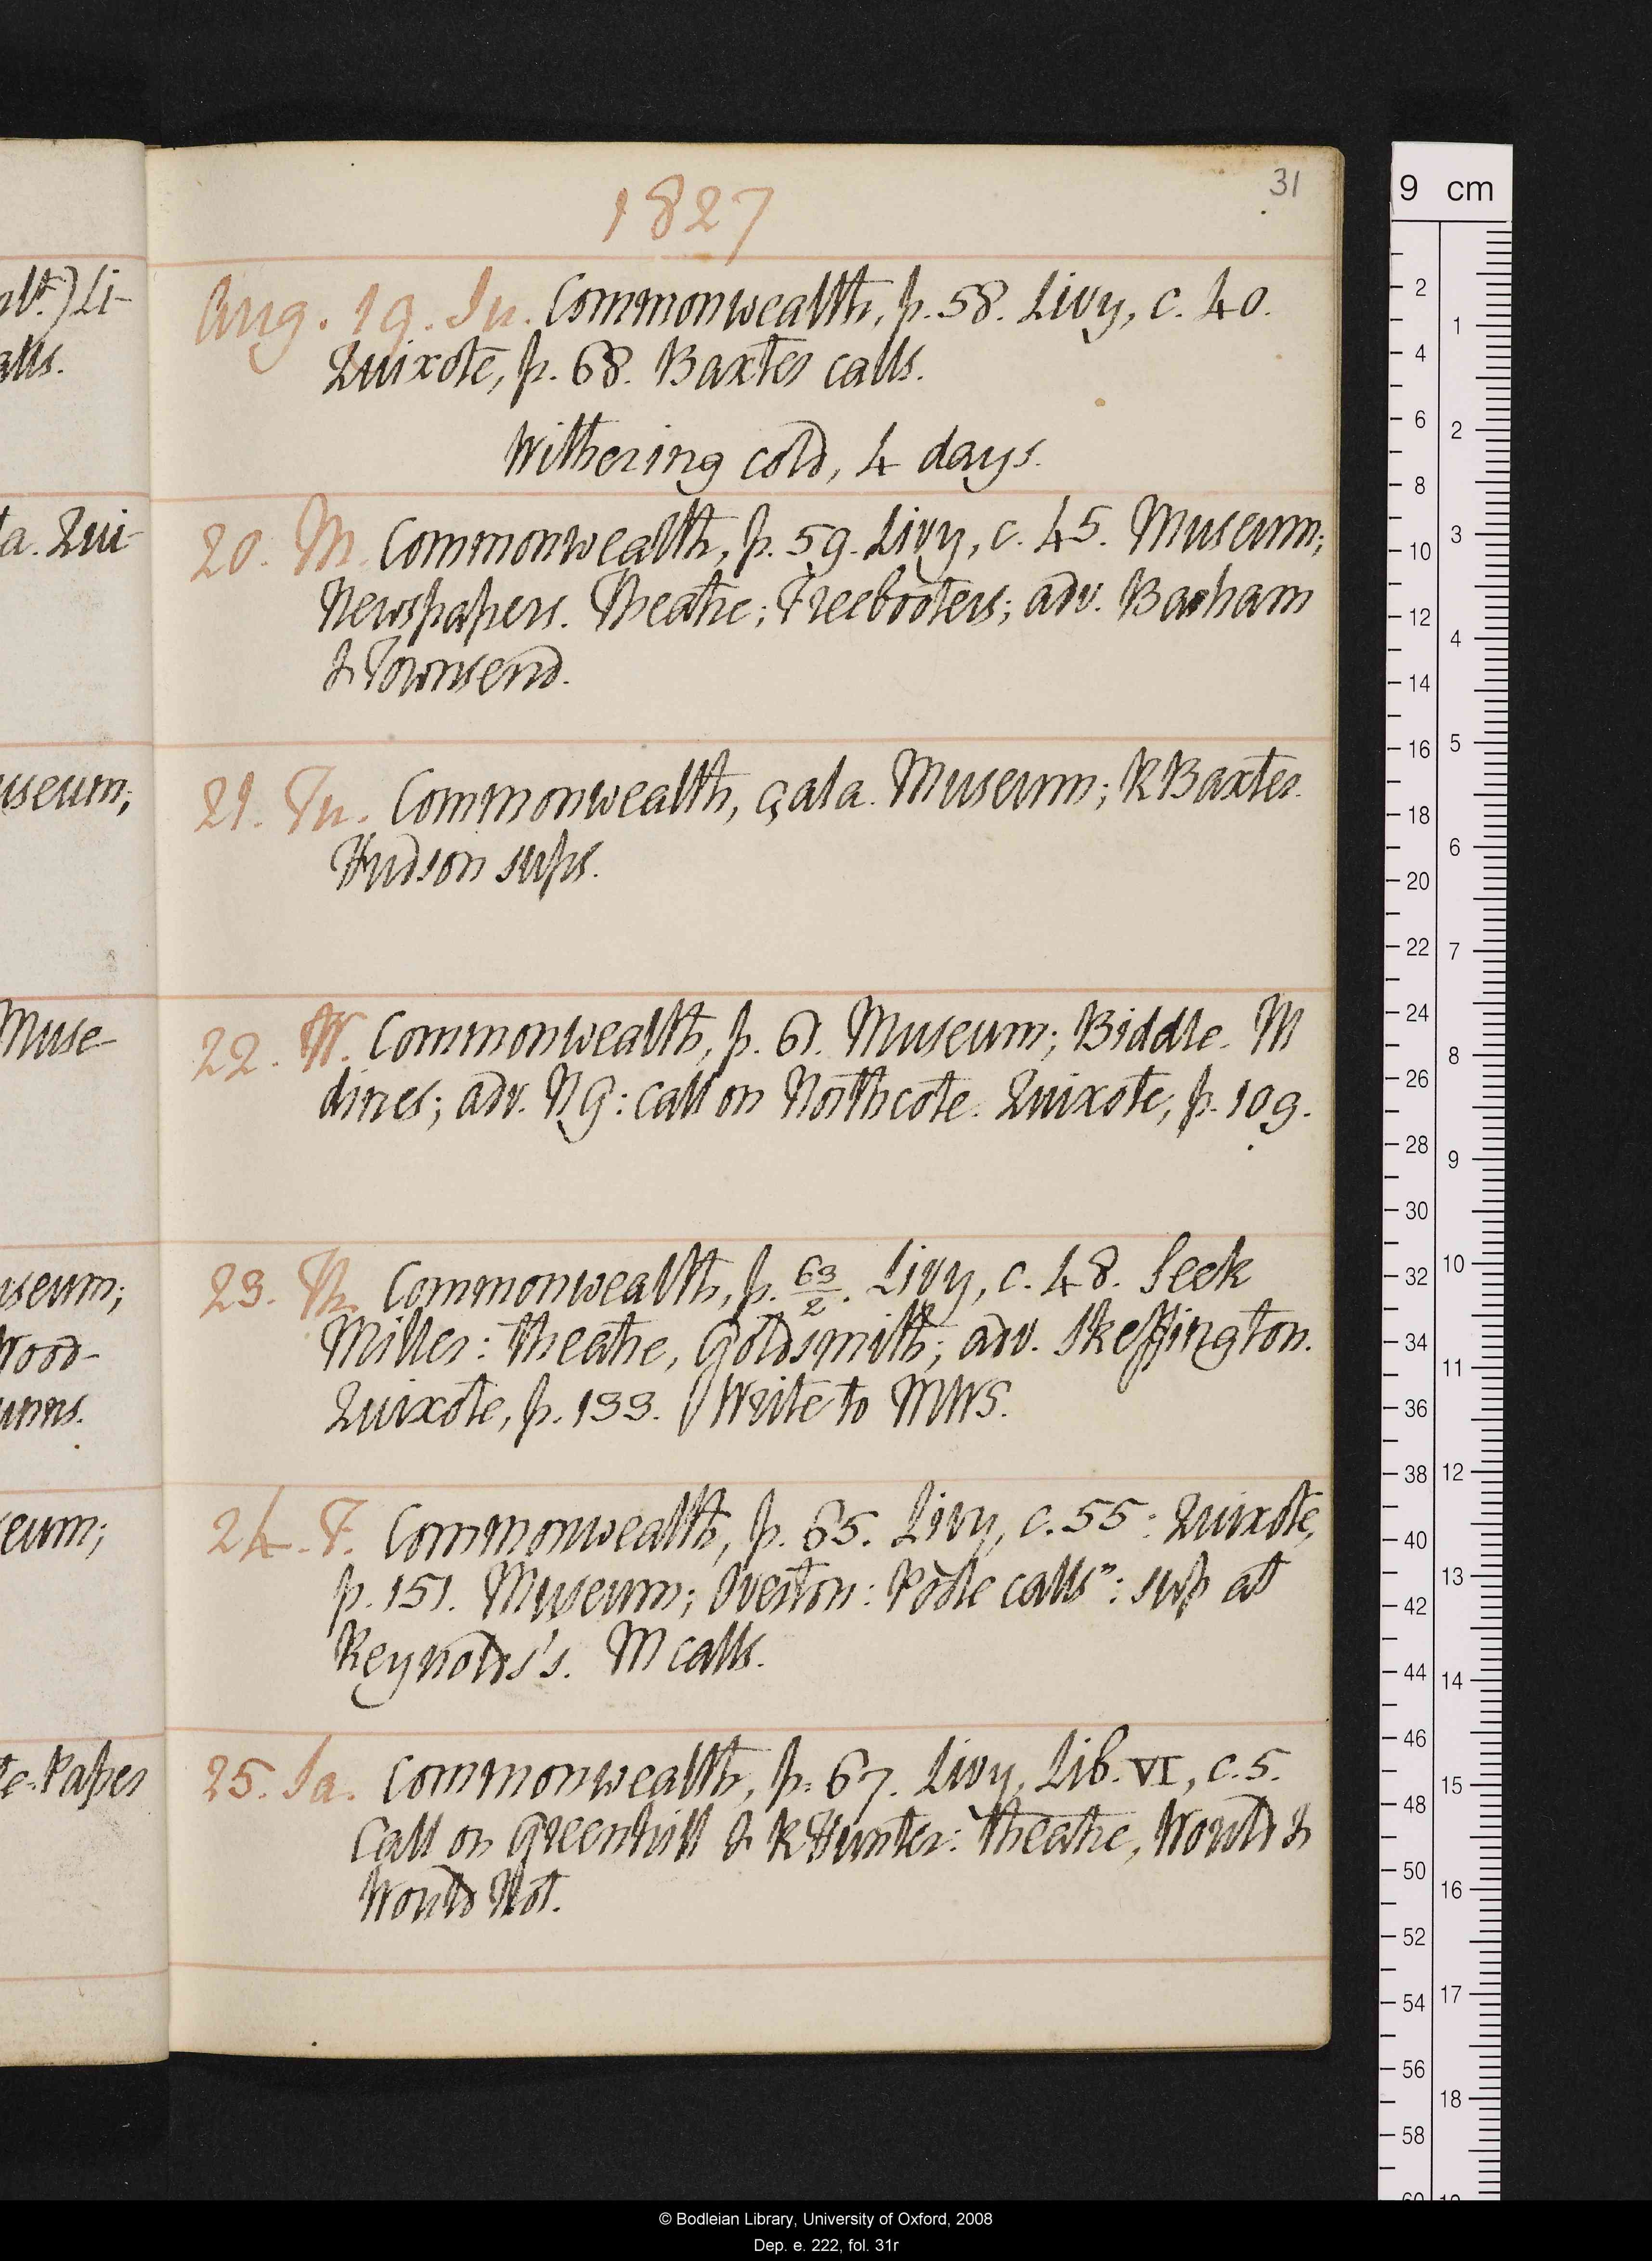 1827
31
Aug. 19. Su. Commonwealth, p. 58. Livy, c. 40.
Quixote, p. 68. Baxter calls.
Withering cold, 4 days.
20. M. Commonwealth, p. 59. Livy, c. 45. Museum;
Newspapers. Theatre; Freebooters; adv. Banham
& Townsend.
21. Tu. Commonwealth, çala. Museum; R Baxter.
Hudson sups.
22. W. Commonwealth, p. 61. Museum; Biddle. M
dines; adv. N G: call on Northcote. Quixote, p. 109.
23. Th. Commonwealth, p. 63/2. Livy, c. 48. Seek
Miller: theatre, Goldsmith; adv. Skeffington.
Quixote, p. 133. Write to MWS.
24. F. Commonwealth, p. 65. Livy, c. 55: Quixote,
p. 151. Museum; Overton: Poole calls": sup at
Reynolds's. M calls.
25. Sa. Commonwealth, p. 67. Livy, Lib. VI, c. 5.
Call on Greenhill & R Hunter: theatre, Would &
Would Not.
lt.) Li-
alls.
a. Qui-
useum;
Muse-
useum;
Wood-
unns.
eum;
te. Paper
9 cm
2
4
6
8
10
12
14
16
18
20
22
24
26
28
30
32
34
36
38
40
42
44
46
48
50
52
54
56
58
60
1
2
3
4
5
6
7
8
9
10
11
12
13
14
15
16
17
18
19
© Bodleian Library, University of Oxford, 2008
Dep. e. 222, fol. 31r